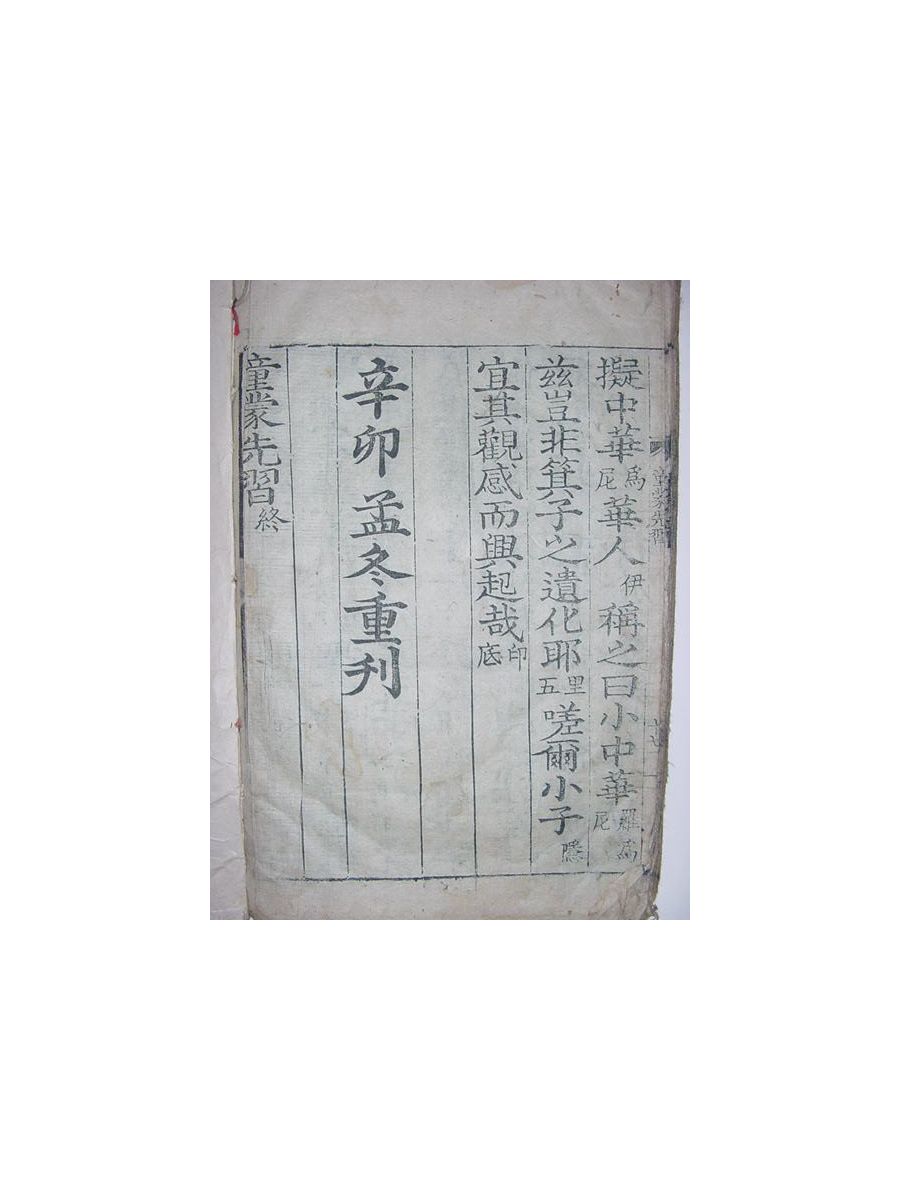 擬中華爲尼華人伊稱之曰小中華羅爲尼
玆豈非箕子之遺化耶里五嗟爾小子隱
宜其觀感而興起哉印底
辛卯孟冬重刊
童蒙先習終
童蒙先習